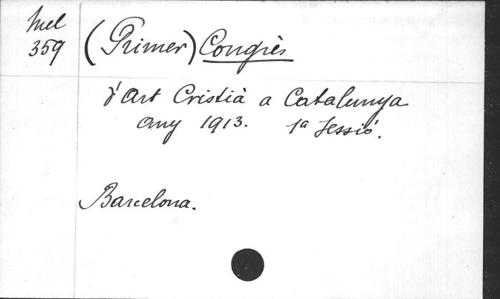 Mel
359
(Primer) Congrès
d'Art Cristià a Catalunya
any 1913. 1ª Sessió.
Barcelona.